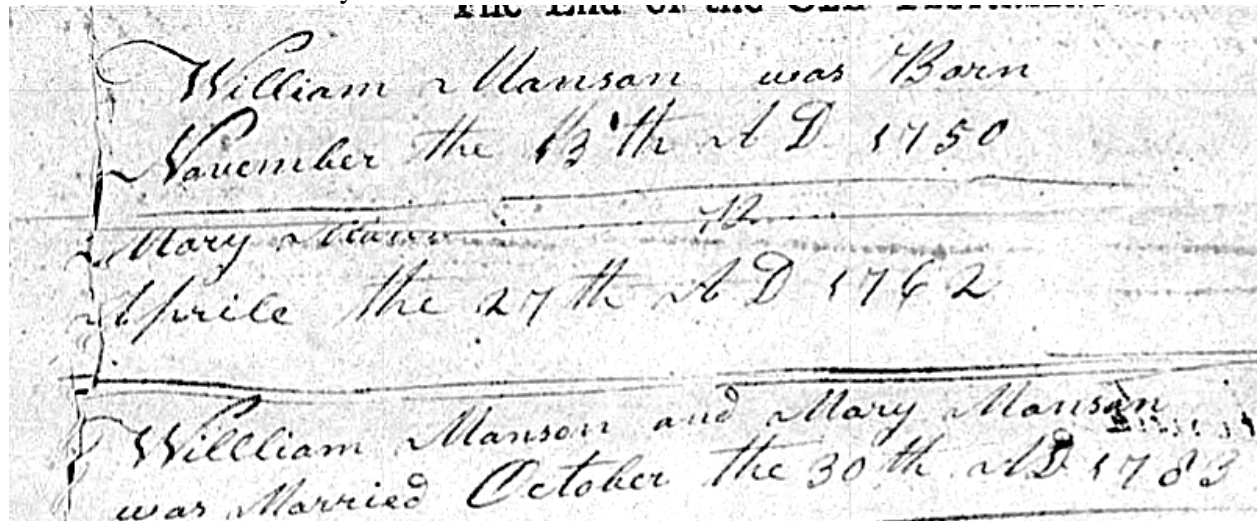 The End of the Old Testament.
William Manson was Born
November the 13th A D 1750
Mary
Aprile the 27th A D 1762
Willliam Manson and Mary Manson
was Married October the 30th A D 1783